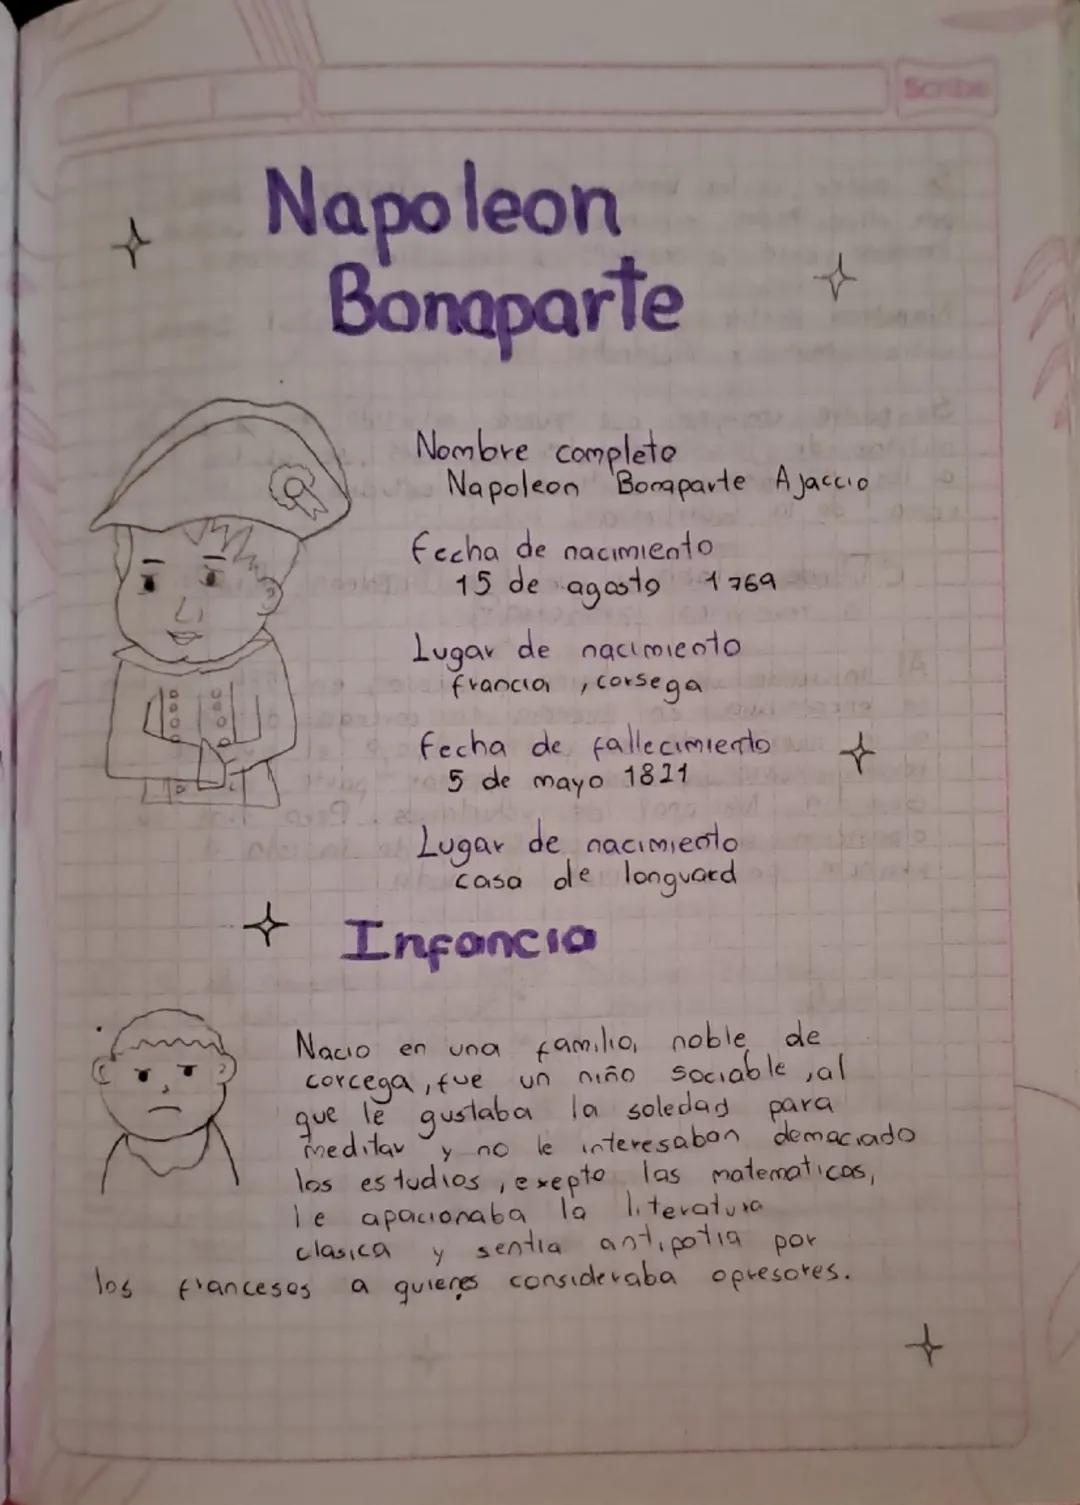 Scribe
Napoleon
Bonaparte
Nombre completo
Napoleon Bonaparte Ajaccio
fecha de nacimiento
15 de agosto 1769
Lugar de nacimiento
francia, corsega
fecha de fallecimiento
5 de mayo 1821
Lugar de nacimiento
casa de longuard
Infancia
Nacio en una familia noble de
corcega, fue un niño sociable, al
que le gustaba la soledad para
meditar y no le interesaban demaciado
los estudios, exepto las matematicas,
le apacionaba la literatura
clasica y sentia antipatia por
los franceses a quienes consideraba opresores.